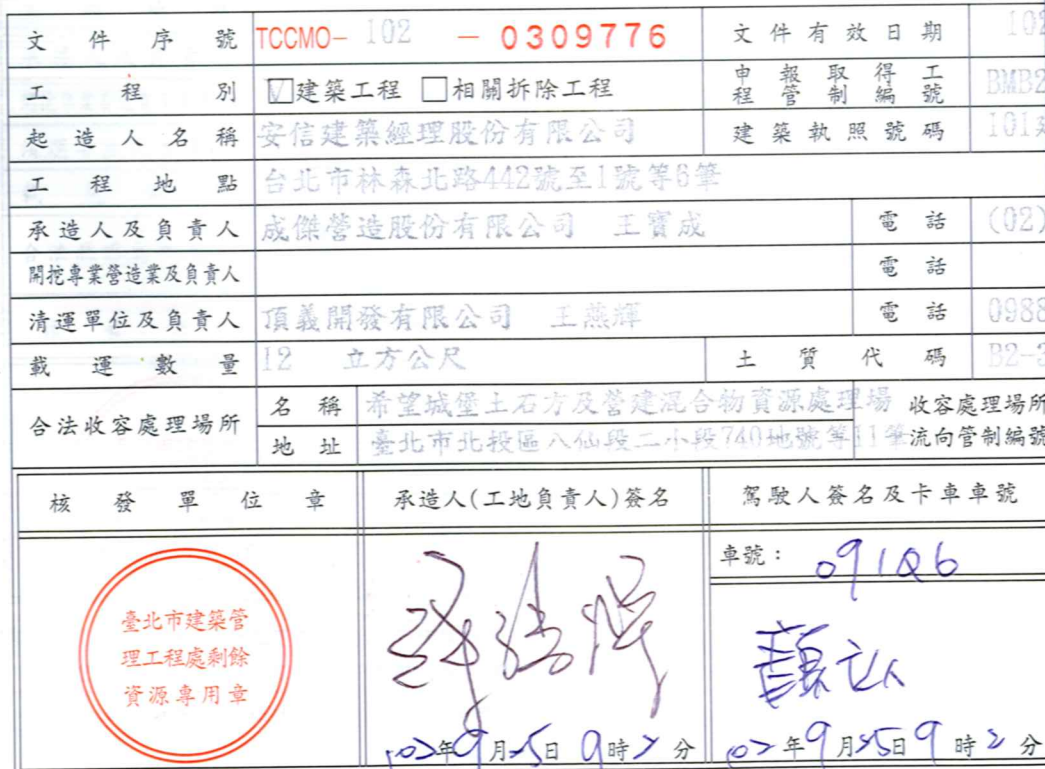 文件序號 TCCMO- 102 - 0309776 文件有效日期 102
工程別 ☑建築工程 □相關拆除工程 申報取得工程管制編號 BMB2
起造人名稱 安信建築經理股份有限公司 建築執照號碼 101建
工程地點 台北市林森北路442號至1號等6筆
承造人及負責人 成傑營造股份有限公司 王寶成 電話 (02)
開挖專業營造業及負責人 電話
清運單位及負責人 頂義開發有限公司 王燕輝 電話 0988
載運數量 12 立方公尺 土質代碼 B2-3
合法收容處理場所 名稱 希望城堡土石方及營建混合物資源處理場 收容處理場所
地址 臺北市北投區八仙段二小段740地號等11筆 流向管制編號
核發單位章 承造人(工地負責人)簽名 駕駛人簽名及卡車車號
車號: 091Q6
臺北市建築管
理工程處剩餘
資源專用章
102年9月25日9時2分 102年9月25日9時2分